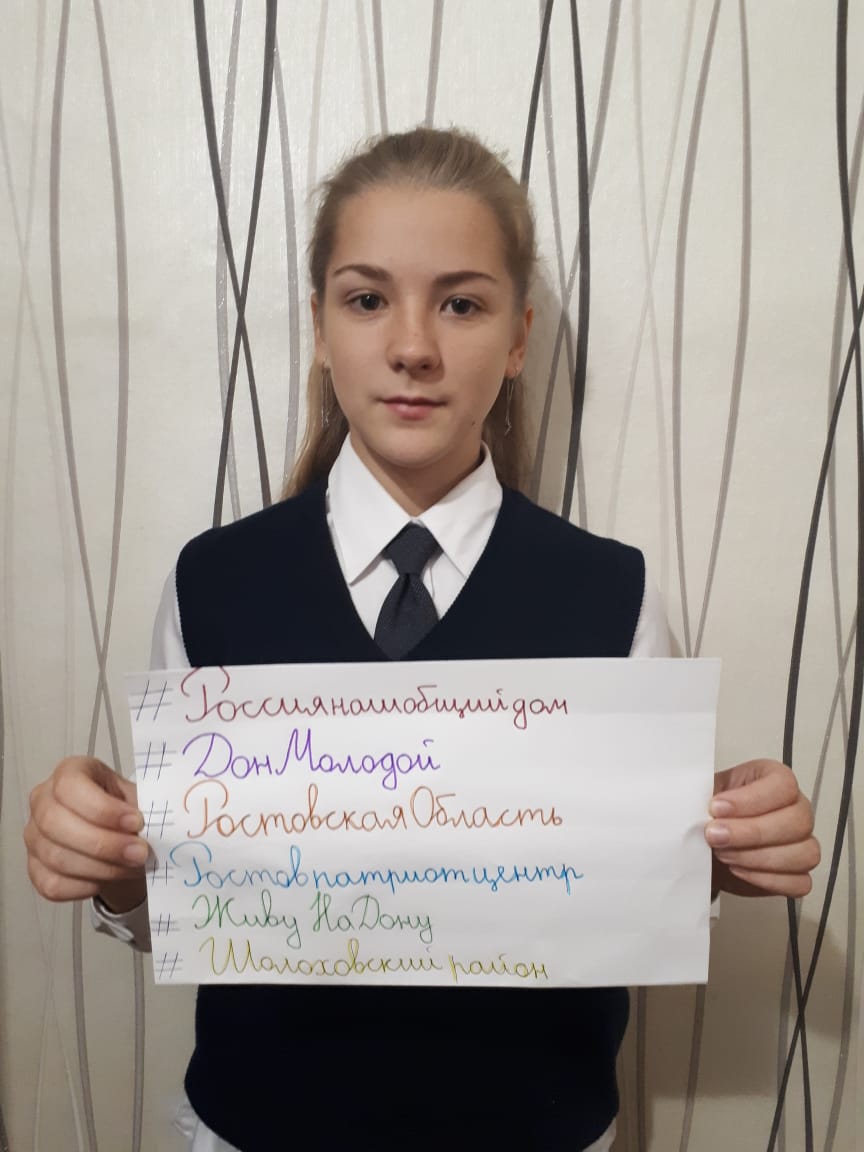 # Россиянашобщийдом
# ДонМолодой
# РостовскаяОбласть
# Ростовпатриотцентр
# ЖивуНаДону
# Шолоховский район